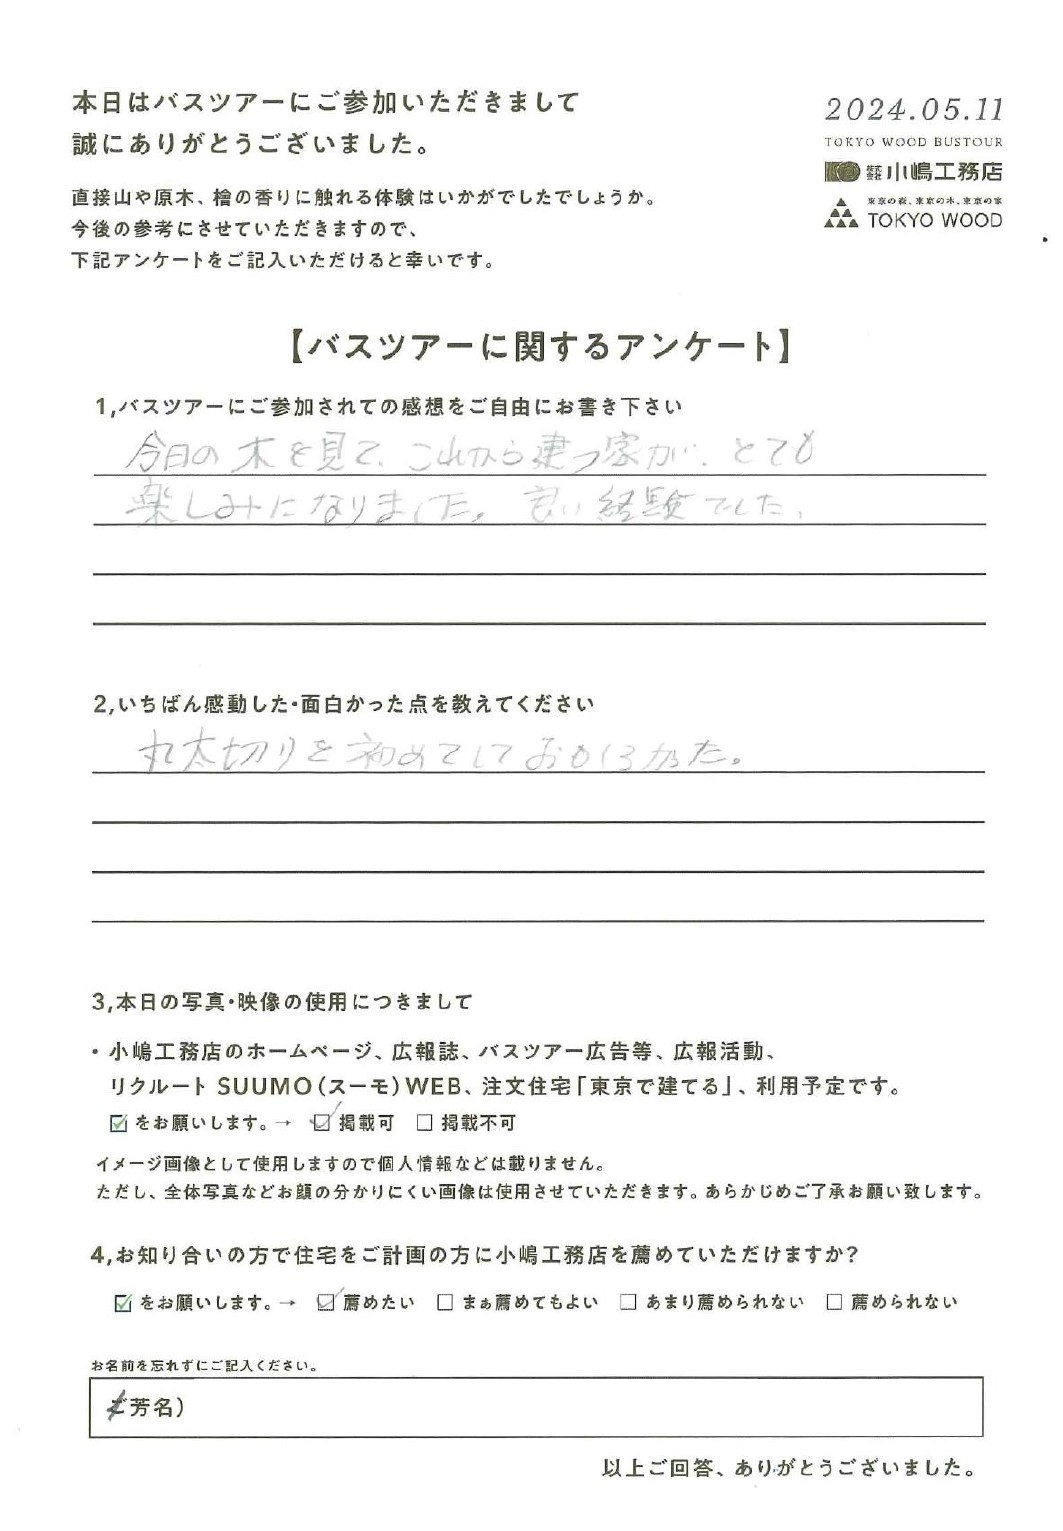 本日はバスツアーにご参加いただきまして
誠にありがとうございました。
2024.05.11
TOKYO WOOD BUSTOUR
株式会社 小嶋工務店
東京の森、東京の木、東京の家
TOKYO WOOD
直接山や原木、檜の香りに触れる体験はいかがでしたでしょうか。
今後の参考にさせていただきますので、
下記アンケートをご記入いただけると幸いです。
【バスツアーに関するアンケート】
1,バスツアーにご参加されての感想をご自由にお書き下さい
今日の木を見て、これから建つ家が、とても
楽しみになりました。良い経験でした、
2,いちばん感動した・面白かった点を教えてください
丸太切りを初めてしておもしろかった。
3,本日の写真・映像の使用につきまして
・小嶋工務店のホームページ、広報誌、バスツアー広告等、広報活動、
リクルート SUUMO(スーモ)WEB、注文住宅「東京で建てる」、利用予定です。
☑をお願いします。→ ☑掲載可 □掲載不可
イメージ画像として使用しますので個人情報などは載りません。
ただし、全体写真などお顔の分かりにくい画像は使用させていただきます。あらかじめご了承お願い致します。
4,お知り合いの方で住宅をご計画の方に小嶋工務店を薦めていただけますか?
☑をお願いします。→ ☑薦めたい □まぁ薦めてもよい □あまり薦められない □薦められない
お名前を忘れずにご記入ください。
ご芳名)
以上ご回答、ありがとうございました。